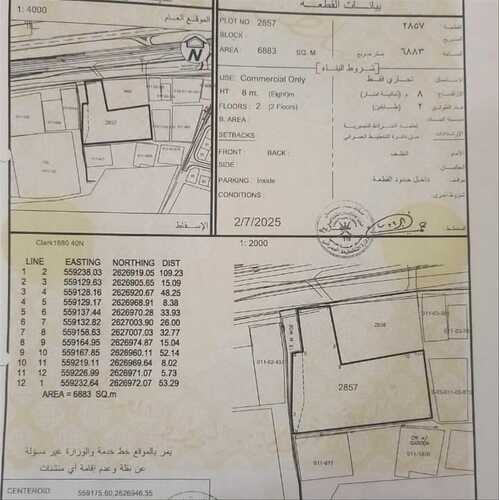 1: 4000
الموقع العام
بيانات القطعة
PLOT NO 2857
القطعة ٢٨٥٧
BLOCK
AREA : 6883 SQ. M
٦٨٨٣ متر مربع
شروط البناء
USE: Commercial Only
تجاري فقط
HT 8 m. (Eight)m
٨ م (ثمانية امتار)
FLOORS: 2 (2 Floors)
٢ طابقين
B. AREA :
SETBACKS
FRONT : BACK :
SIDE
PARKING : Inside
داخل حدود القطعة
CONDITIONS
N
2857
2/7/2025
Clark1880 40N
1: 2000
LINE EASTING NORTHING DIST
1 2 559238.03 2626919.05 109.23
2 3 559129.63 2626905.65 15.09
3 4 559128.16 2626920.67 48.25
4 5 559129.17 2626968.91 8.38
5 6 559137.44 2626970.28 33.93
6 7 559132.82 2627003.90 26.00
7 8 559158.63 2627007.03 32.77
8 9 559164.95 2626974.87 15.04
9 10 559167.85 2626960.11 52.14
10 11 559219.11 2626969.64 8.02
11 12 559226.99 2626971.07 5.73
12 1 559232.64 2626972.07 53.29
AREA = 6883 SQ.m
2857
يمر بالموقع خط خدمة والوزارة غير مسؤلة
عن نقلة وعدم إقامة أي منشئات
CENTEROID: 559175.60,2626946.35